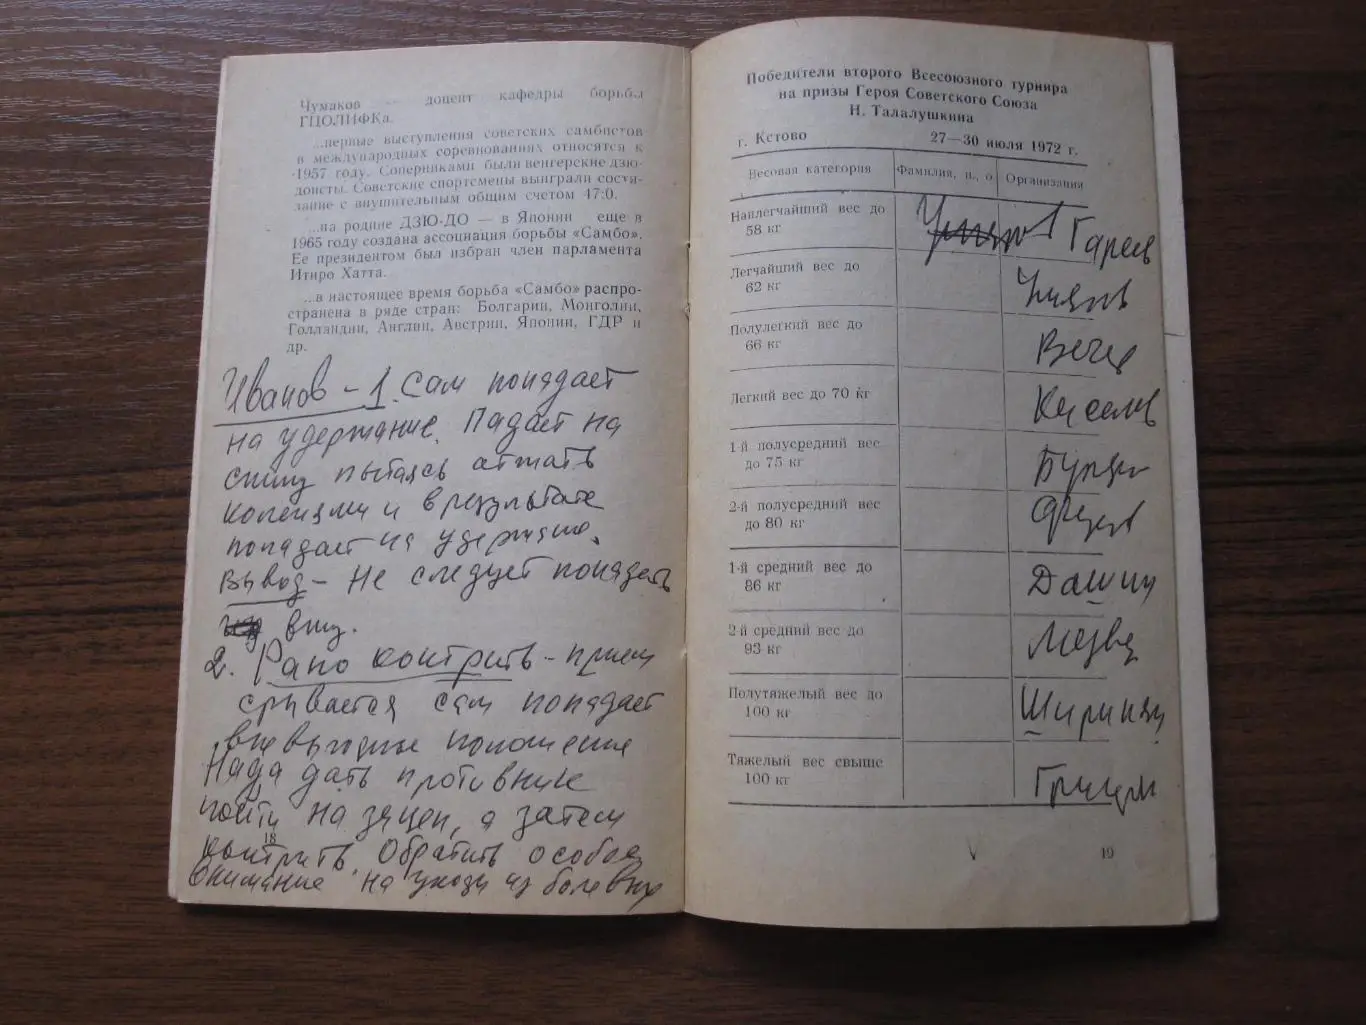 Чумаков — доцент кафедры борьбы
ГЦОЛИФКа.
...первые выступления советских самбистов
в международных соревнованиях относятся к
1957 году. Соперниками были венгерские дзю-
доисты. Советские спортсмены выиграли состя-
зание с внушительным общим счетом 47:0.
...на родине ДЗЮ-ДО — в Японии еще в
1965 году создана ассоциация борьбы «Самбо».
Ее президентом был избран член парламента
Итиро Хатта.
...в настоящее время борьба «Самбо» распро-
странена в ряде стран: Болгарии, Монголии,
Голландии, Англии, Австрии, Японии, ГДР и
др.
Иванов - 1. Сам попадает
на удержание. Падает на
спину пытаясь отжать
коленями и в результате
попадает на удержание.
Вывод - Не следует попадать
вниз.
2. Рано контрить - прием
срывается сам попадает
в невыгодное положение
Надо дать противник
пойти на зацеп, а затем
контрить. Обратить особое
внимание на уходы из болевых
18
Победители второго Всесоюзного турнира
на призы Героя Советского Союза
Н. Талалушкина
г. Кстово 27—30 июля 1972 г.
Весовая категория Фамилия, и., о Организация
Наилегчайший вес до
58 кг Гареев
Легчайший вес до
62 кг
Полулегкий вес до
66 кг
Легкий вес до 70 кг Киселев
1-й полусредний вес
до 75 кг
2-й полусредний вес
до 80 кг
1-й средний вес до
86 кг
2-й средний вес до
93 кг
Полутяжелый вес до
100 кг
Тяжелый вес свыше
100 кг
19